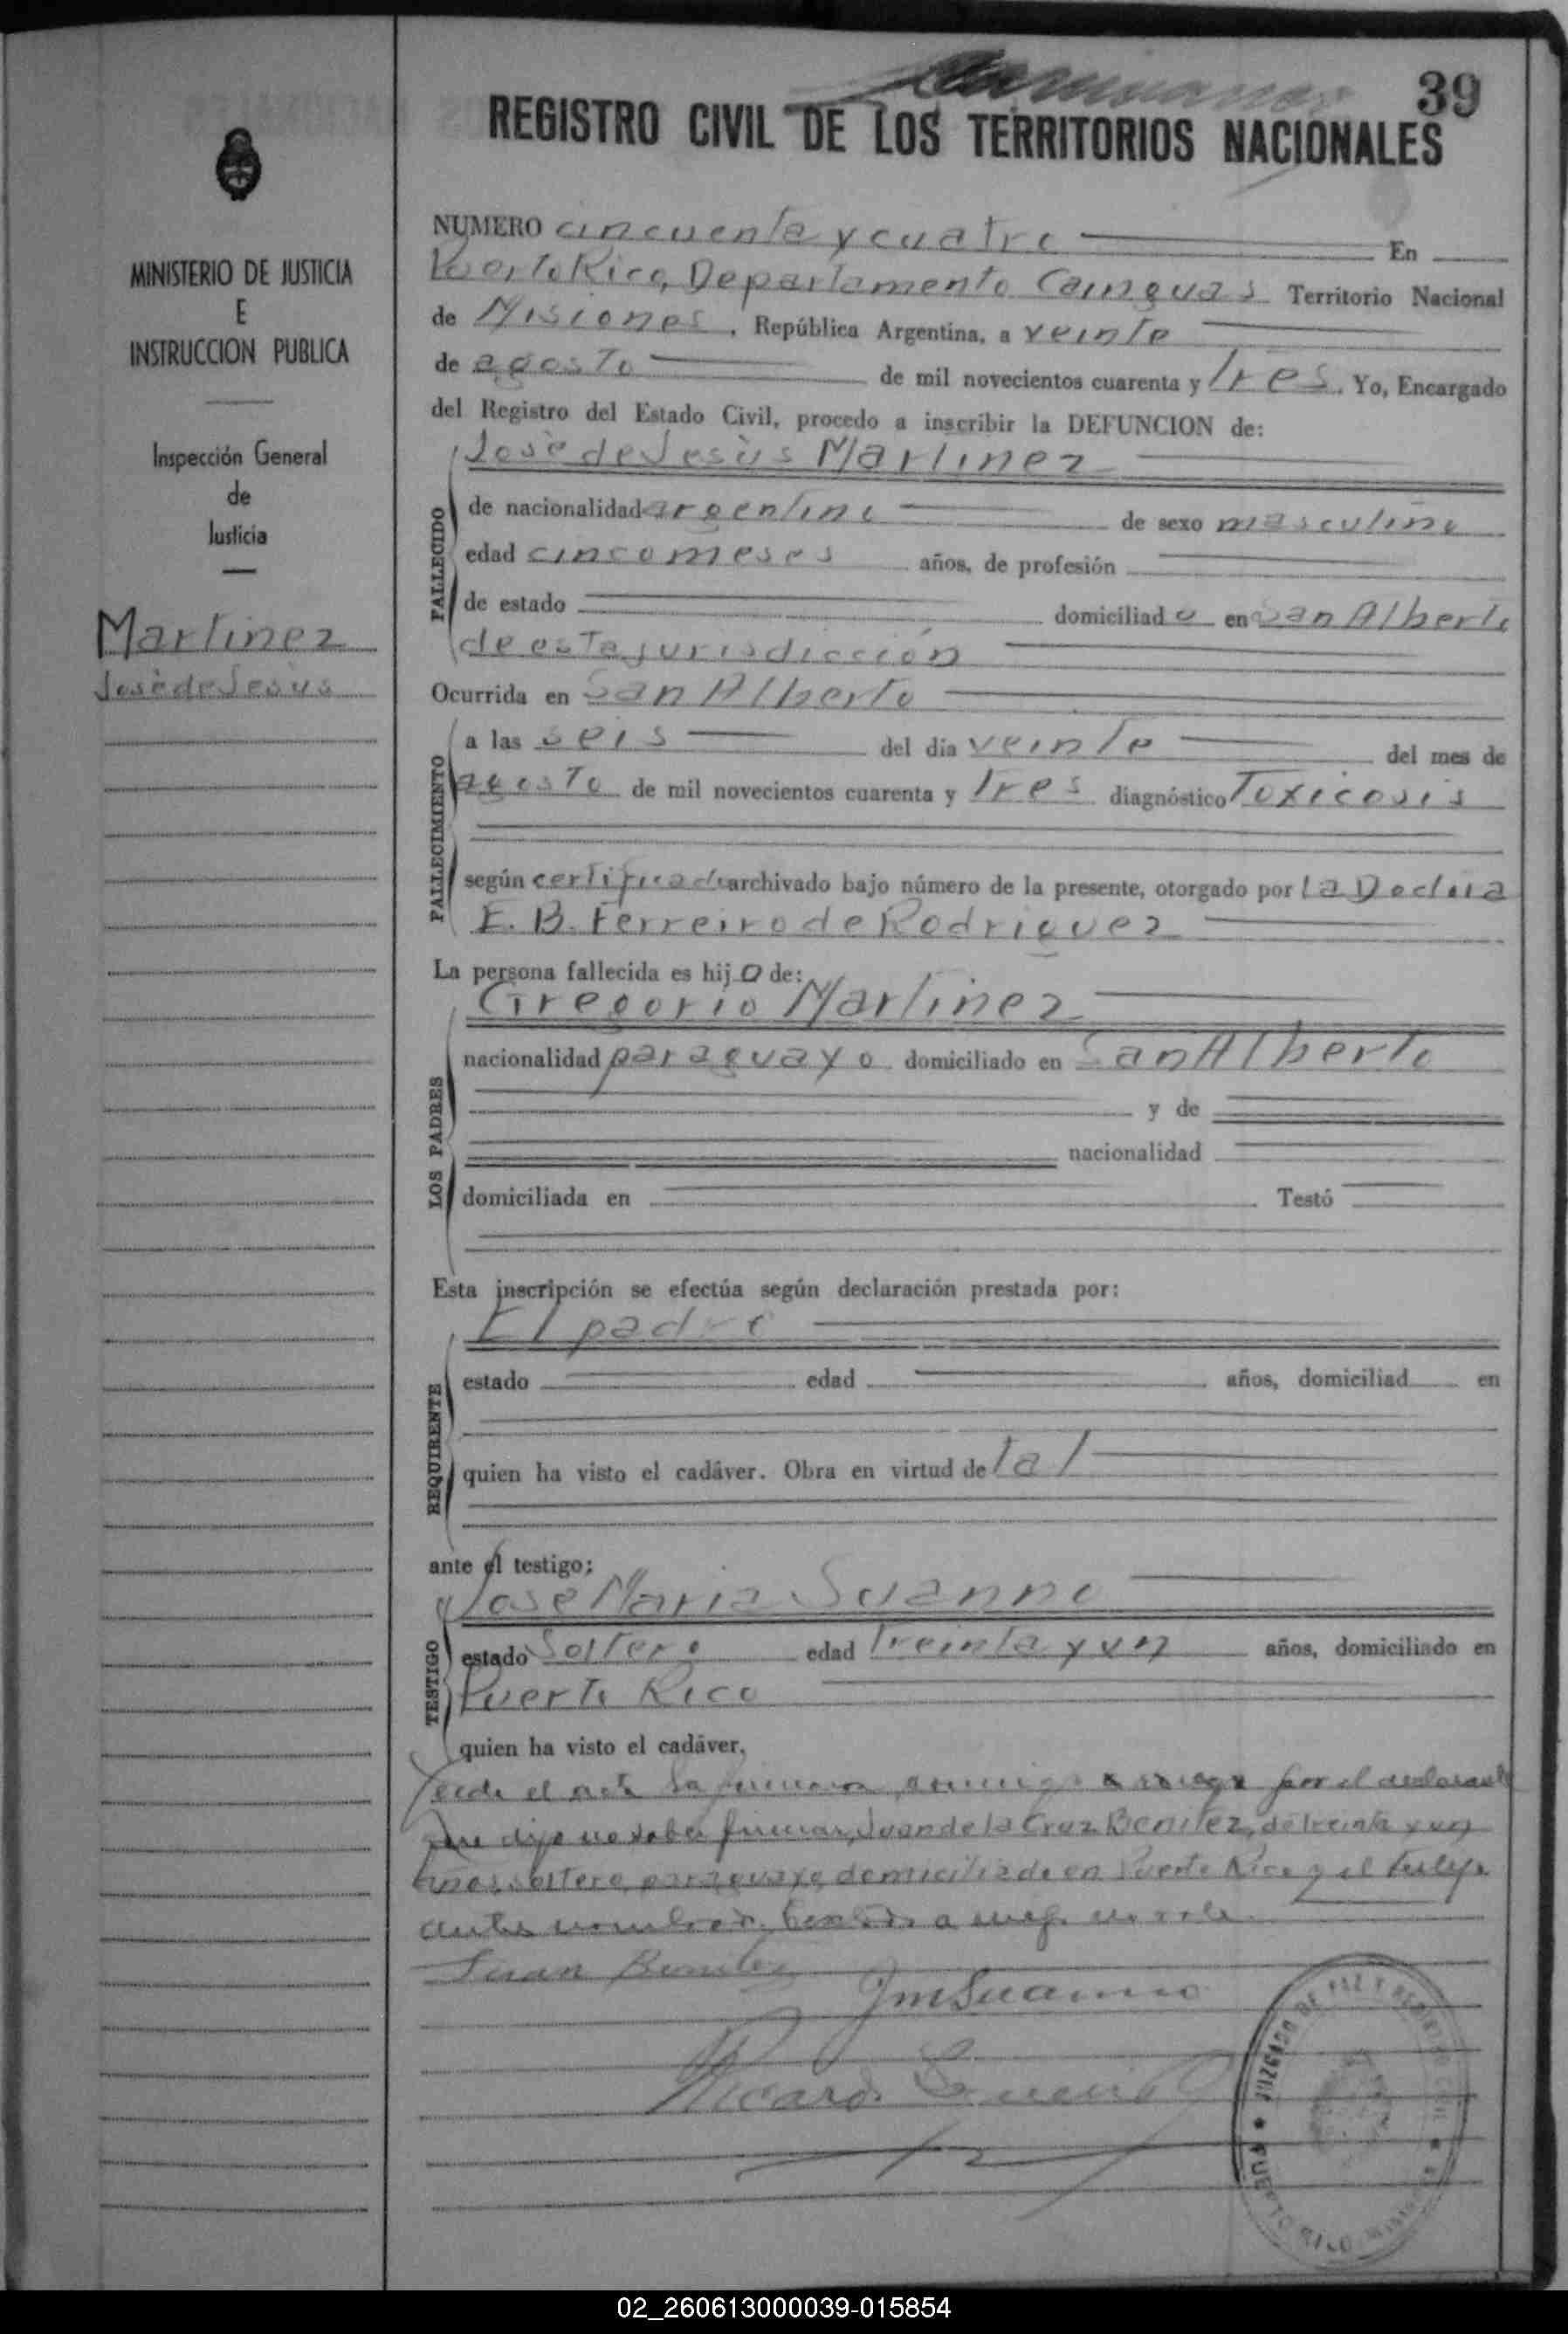 39
REGISTRO CIVIL DE LOS TERRITORIOS NACIONALES
MINISTERIO DE JUSTICIA
E
INSTRUCCION PUBLICA
Inspección General
de
Justicia
Martinez
José de Jesús
NUMERO cincuenta y cuatro En
Puerto Rico, Departamento Cainguas Territorio Nacional
de Misiones, República Argentina, a veinte
de agosto de mil novecientos cuarenta y tres. Yo, Encargado
del Registro del Estado Civil, procedo a inscribir la DEFUNCION de:
José de Jesús Martinez
FALLECIDO
de nacionalidad argentino de sexo masculino
edad cinco meses años, de profesión
de estado domiciliado en San Alberto
de esta jurisdicción
Ocurrida en San Alberto
FALLECIMIENTO
a las seis del día veinte del mes de
agosto de mil novecientos cuarenta y tres diagnóstico Toxicosis
según certificado archivado bajo número de la presente, otorgado por la Doctora
E. B. Ferreiro de Rodriguez
La persona fallecida es hijo de:
Gregorio Martinez
LOS PADRES
nacionalidad paraguayo domiciliado en San Alberto
y de
nacionalidad
domiciliada en Testó
Esta inscripción se efectúa según declaración prestada por:
El padre
REQUIRENTE
estado edad años, domiciliad en
quien ha visto el cadáver. Obra en virtud de tal
ante el testigo;
José Maria Suanno
TESTIGO
estado soltero edad treinta y un años, domiciliado en
Puerto Rico
quien ha visto el cadáver.
Leida el acta la firmaron conmigo a ruego por el declarante
que dijo no saber firmar, Juan de la Cruz Benitez, de treinta y un
años, soltero, paraguayo, domiciliado en Puerto Rico y el testigo
antes nombrado.
Juan Benitez
JmSuanno
Ricardo
JUZGADO DE PAZ Y REGISTRO CIVIL
PUERTO RICO MISIONES
02_260613000039-015854